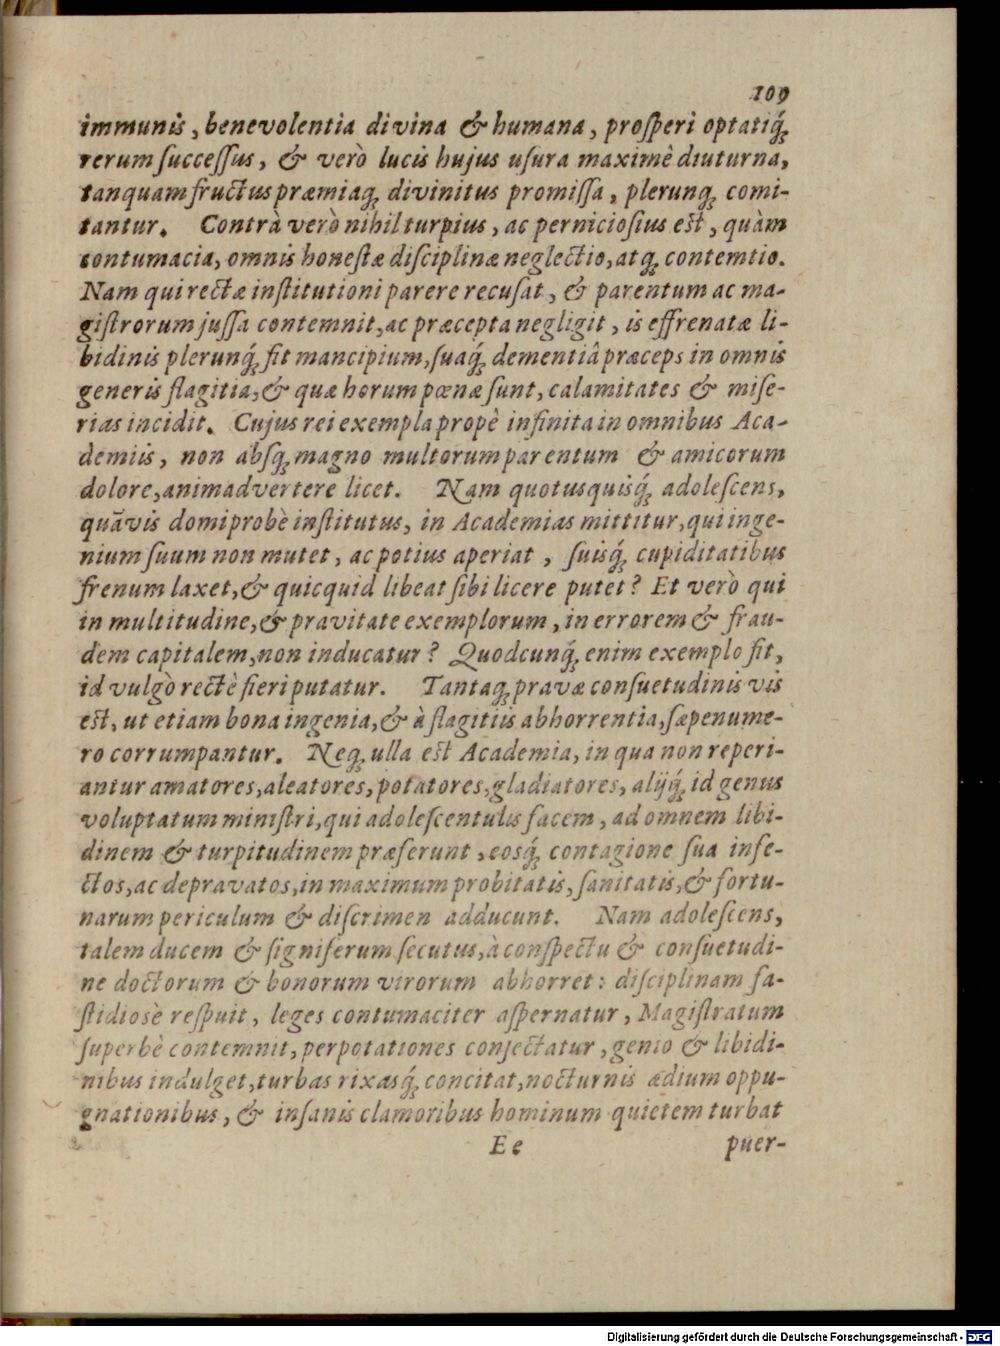 109
immunis, benevolentia divina & humana, proſperi optatiq́;
rerum ſucceſſus, & verò lucis hujus uſura maximè diuturna,
tanquam fructus præmiaq; divinitus promiſſa, plerunq; comi-
tantur. Contrà verò nihil turpius, ac perniciofius est, quàm
contumacia, omnis honeſtæ diſciplinæ neglectio, atq; contemtio.
Nam qui rectæ inſtitutioni parere recuſat, & parentum ac ma-
giſtrorum juſſa contemnit, ac præcepta negligit, is effrenatæ li-
bidinis plerunq́; fit mancipium, ſuaq́; dementiâ præceps in omnis
generis flagitia, & quæ horum pœnæ ſunt, calamitates & miſe-
rias incidit. Cujus rei exempla propè infinita in omnibus Aca-
demiis, non abſq; magno multorum parentum & amicorum
dolore, animadvertere licet. Nam quotusquisq́; adoleſcens,
quãvis domi probè inſtitutus, in Academias mittitur, qui inge-
nium ſuum non mutet, ac potius aperiat, ſuisq́; cupiditatibus
frenum laxet, & quicquid libeat ſibi licere putet? Et verò qui
in multitudine, & pravitate exemplorum, in errorem & frau-
dem capitalem, non inducatur? Quodcunq́; enim exemplo fit,
id vulgò rectè fieri putatur. Tantaq; pravæ conſuetudinis vis
est, ut etiam bona ingenia, & à flagitiis abhorrentia, ſæpenume-
ro corrumpantur. Neq; ulla est Academia, in qua non reperi-
antur amatores, aleatores, potatores, gladiatores, alijq́; id genus
voluptatum miniſtri, qui adoleſcentulis facem, ad omnem libi-
dinem & turpitudinem præferunt, eosq́; contagione ſua infe-
ctos, ac depravatos, in maximum probitatis, ſanitatis, & fortu-
narum periculum & diſcrimen adducunt. Nam adoleſcens,
talem ducem & ſigniferum ſecutus, à conſpectu & conſuetudi-
ne doctorum & bonorum virorum abhorret: diſciplinam fa-
ſtidiosè reſpuit, leges contumaciter aſpernatur, Magiſtratum
ſuperbè contemnit, perpotationes conſectatur, genio & libidi-
nibus indulget, turbas rixasq́; concitat, nocturnis ædium oppu-
gnationibus, & inſanis clamoribus hominum quietem turbat
Ee puer-
Digitalisierung gefördert durch die Deutsche Forschungsgemeinschaft - DFG